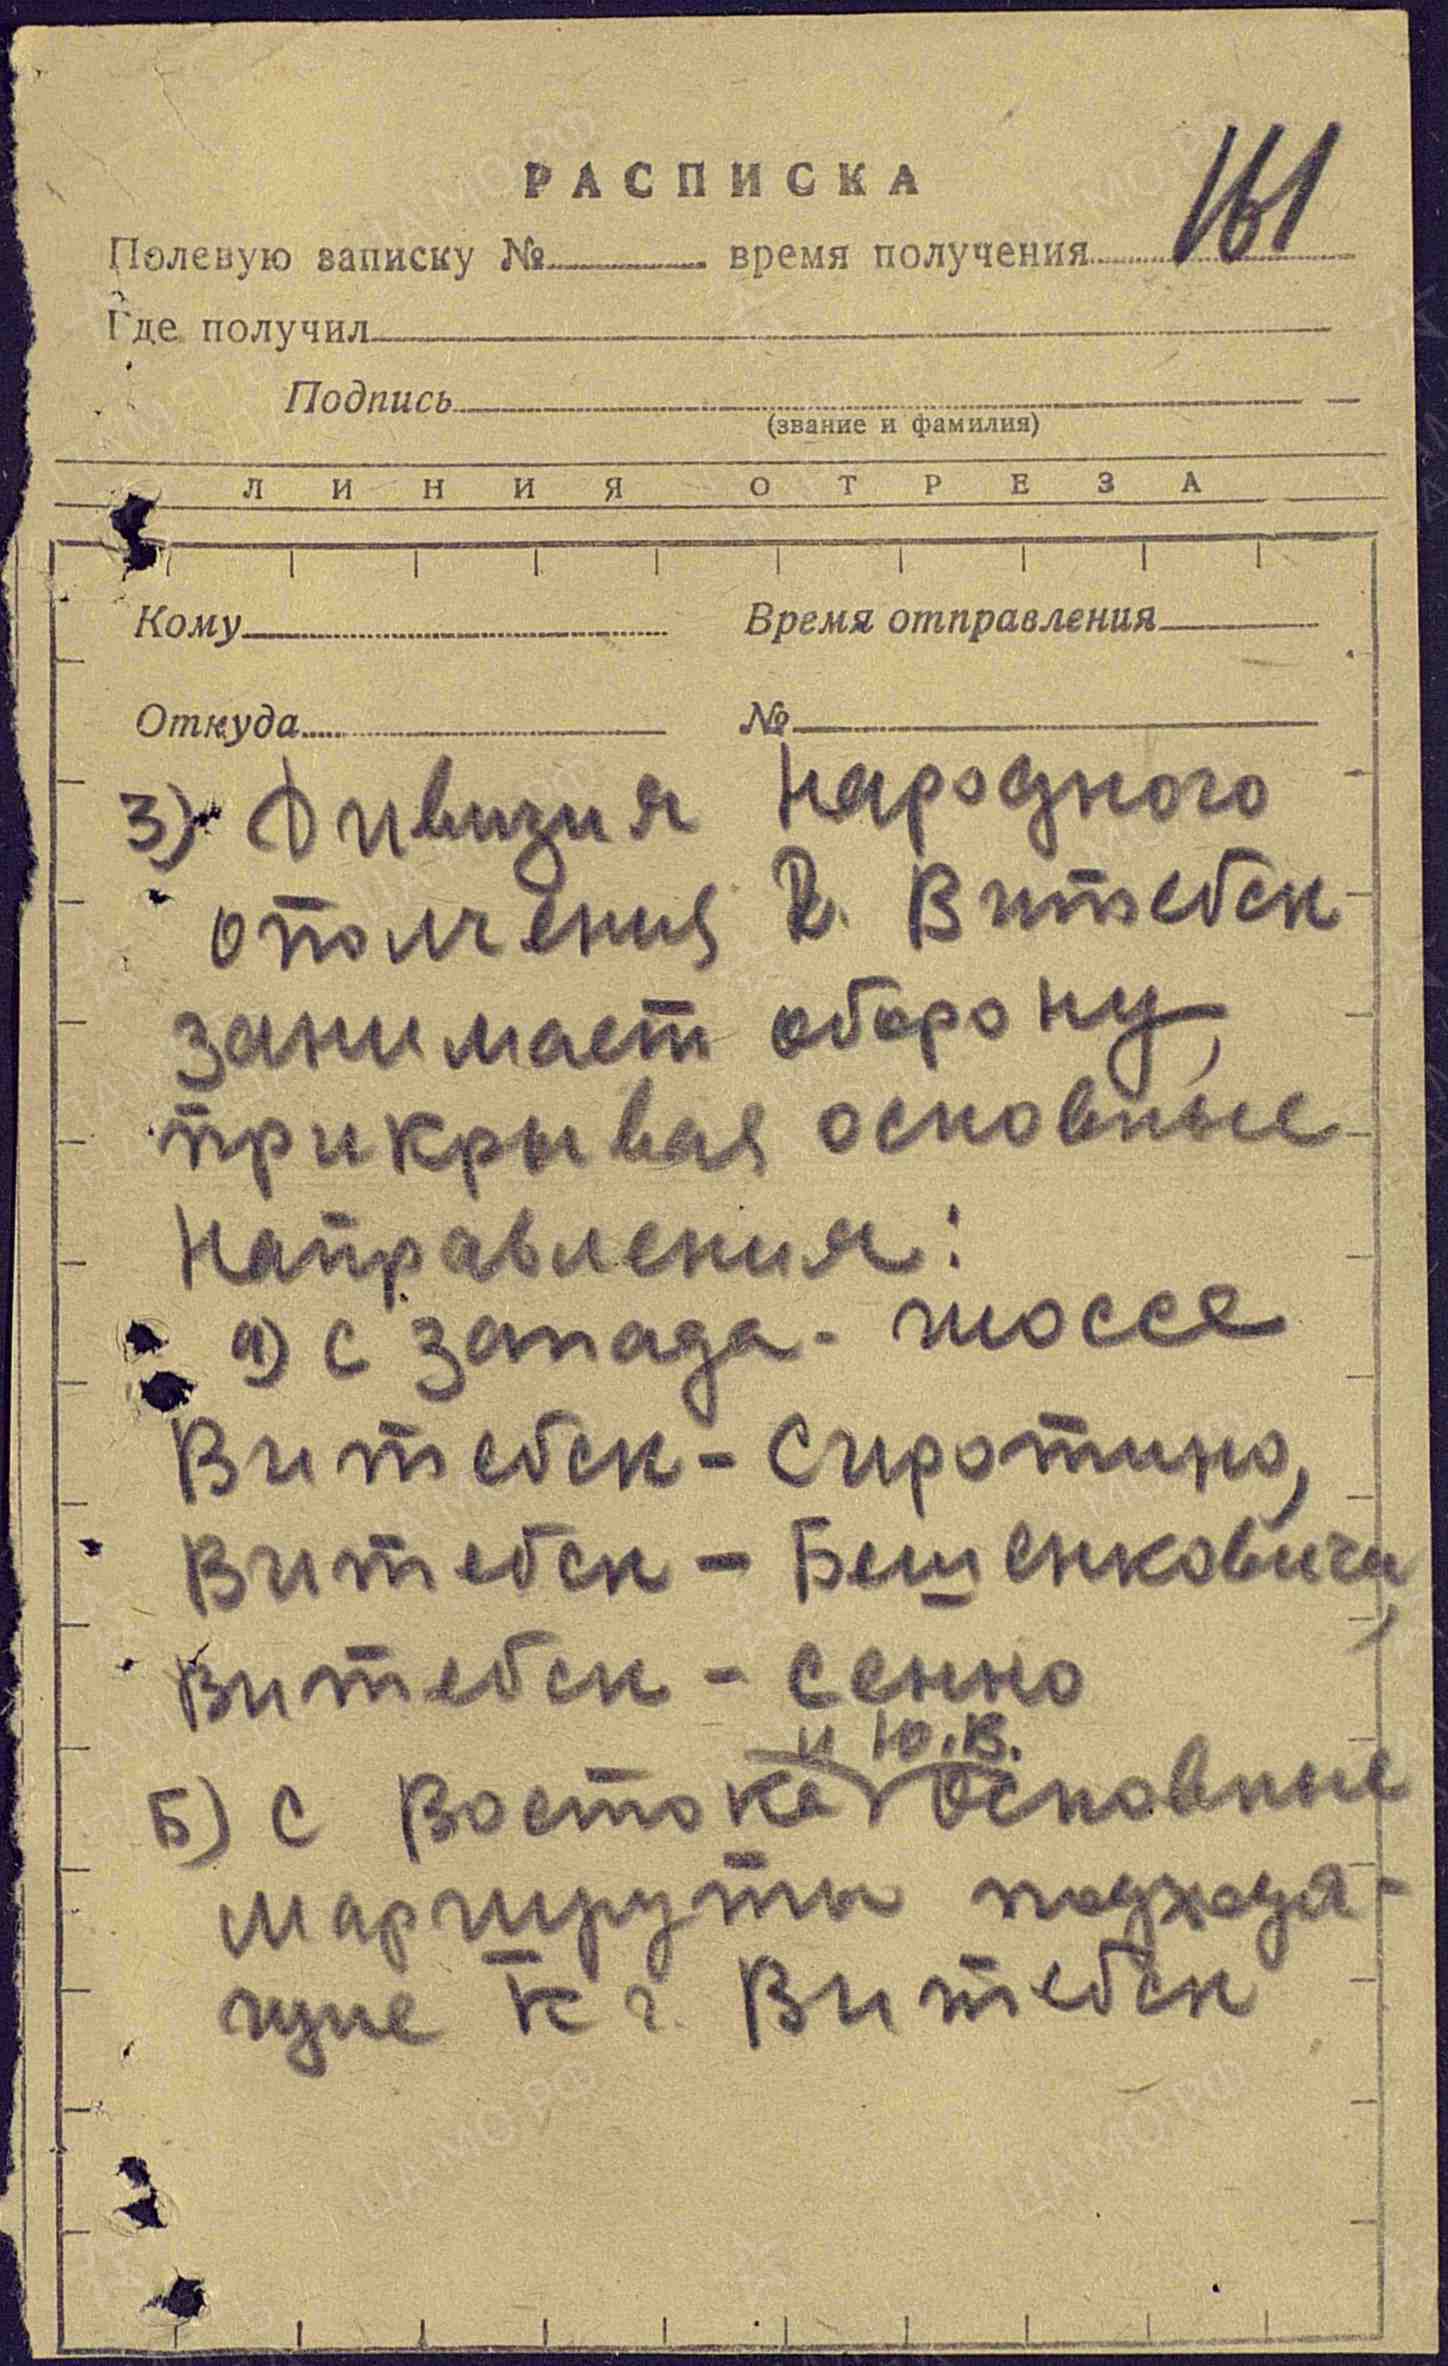 161
РАСПИСКА
Полевую записку № время получения
Где получил
Подпись
(звание и фамилия)
ЛИНИЯ ОТРЕЗА
Кому Время отправления
Откуда №
3) Дивизия народного
ополчения г. Витебск
занимает оборону,
прикрывая основные
направления:
а) с запада - шоссе
Витебск - Сиротино,
Витебск - Бешенковичи,
Витебск - Сенно
и Ю.В.
Б) с Востока основные
маршруты подходя-
щие к г. Витебск
ЦА МО РФ